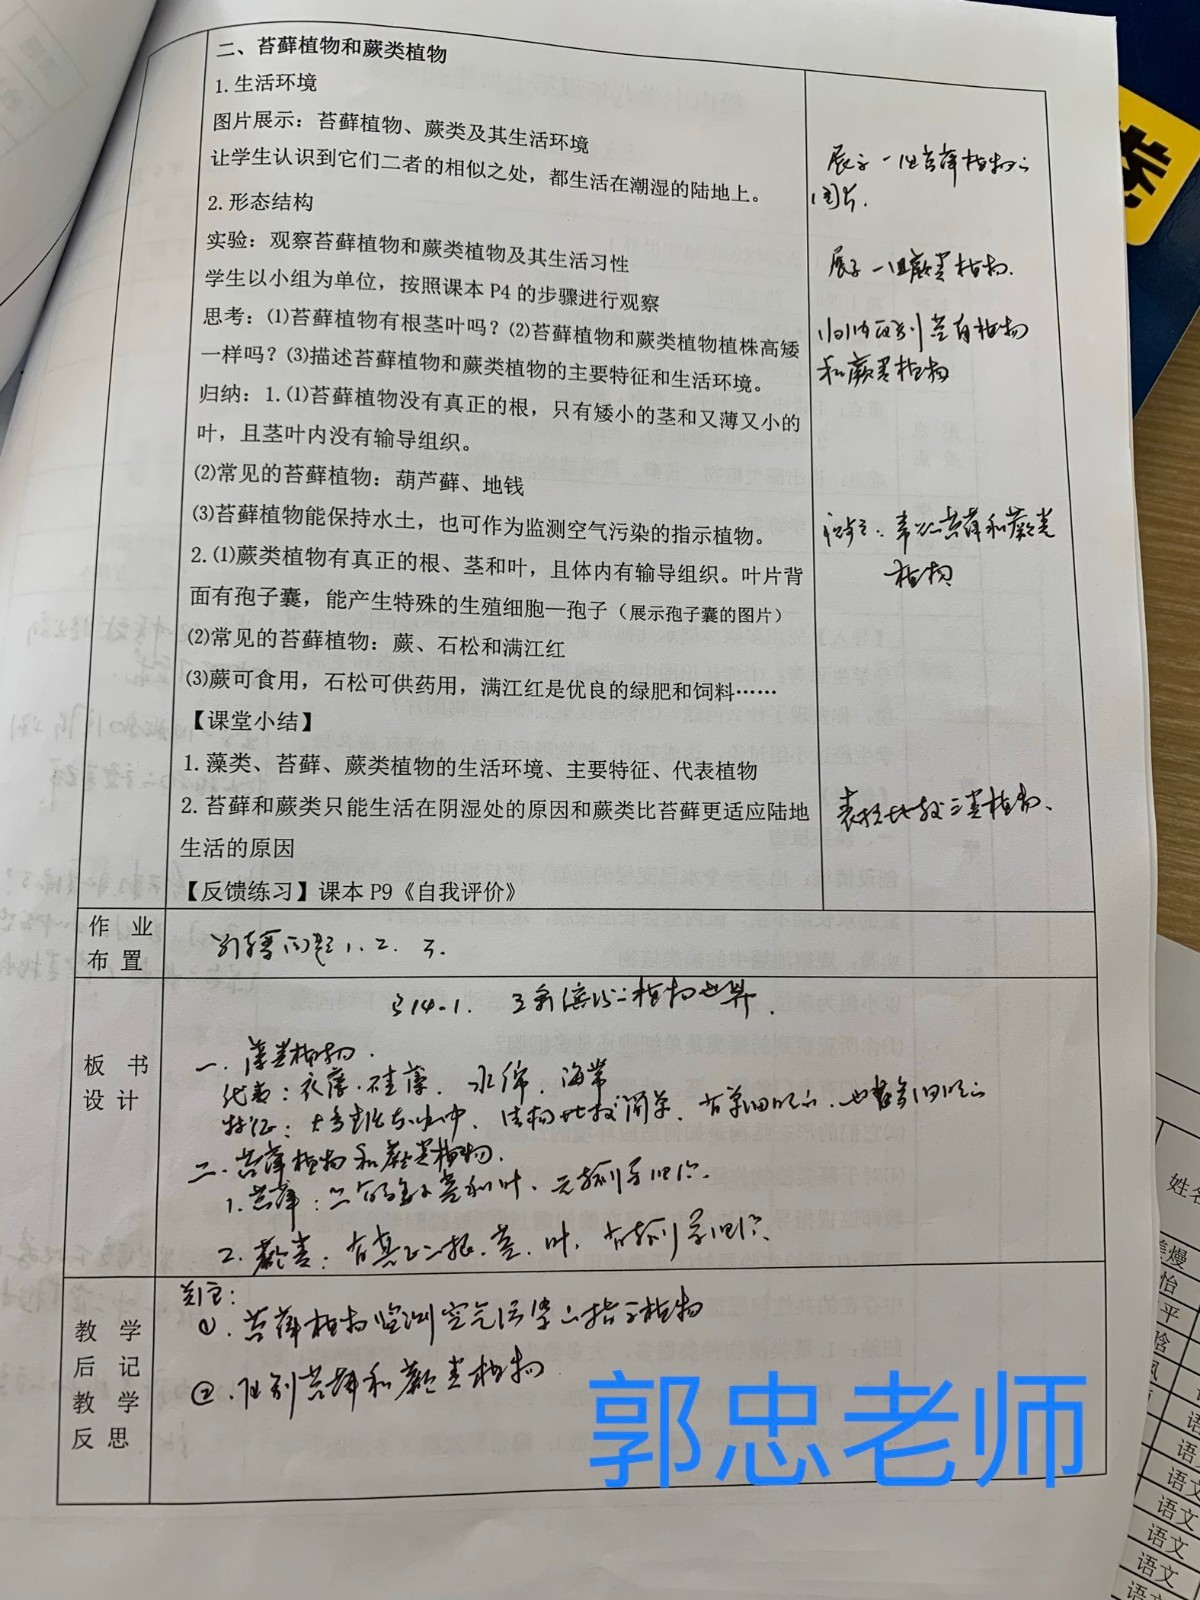 二、苔藓植物和蕨类植物
1.生活环境
图片展示：苔藓植物、蕨类及其生活环境
让学生认识到它们二者的相似之处，都生活在潮湿的陆地上。
2.形态结构
实验：观察苔藓植物和蕨类植物及其生活习性
学生以小组为单位，按照课本 P4 的步骤进行观察
思考：⑴苔藓植物有根茎叶吗？⑵苔藓植物和蕨类植物植株高矮
一样吗？⑶描述苔藓植物和蕨类植物的主要特征和生活环境。
归纳：1.⑴苔藓植物没有真正的根，只有矮小的茎和又薄又小的
叶，且茎叶内没有输导组织。
⑵常见的苔藓植物：葫芦藓、地钱
⑶苔藓植物能保持水土，也可作为监测空气污染的指示植物。
2.⑴蕨类植物有真正的根、茎和叶，且体内有输导组织。叶片背
面有孢子囊，能产生特殊的生殖细胞—孢子（展示孢子囊的图片）
⑵常见的苔藓植物：蕨、石松和满江红
⑶蕨可食用，石松可供药用，满江红是优良的绿肥和饲料……
【课堂小结】
1.藻类、苔藓、蕨类植物的生活环境、主要特征、代表植物
2.苔藓和蕨类只能生活在阴湿处的原因和蕨类比苔藓更适应陆地
生活的原因
【反馈练习】课本 P9《自我评价》
展示一组苔藓植物的
图片.
展示一组蕨类植物.
归纳区别苔藓植物
和蕨类植物
常见苔藓和蕨类
植物
表格比较三类植物、
作 业
布 置
1. 2. 3.
板 书
设 计
§14-1. 五彩缤纷的植物世界.
一. 藻类植物.
代表：衣藻.硅藻. 水绵. 海带
特征：大多生活在水中. 结构比较简单. 有单细胞的. 也有多细胞的
二. 苔藓植物和蕨类植物.
1. 苔藓：茎和叶. 无输导组织.
2. 蕨类：有真正的根. 茎. 叶. 有输导组织.
教 学
后 记
教 学
反 思
关注：
①. 苔藓植物监测空气污染的指示植物
②. 区别苔藓和蕨类植物
郭忠老师
姓名
怡
平
语文
语文
语文